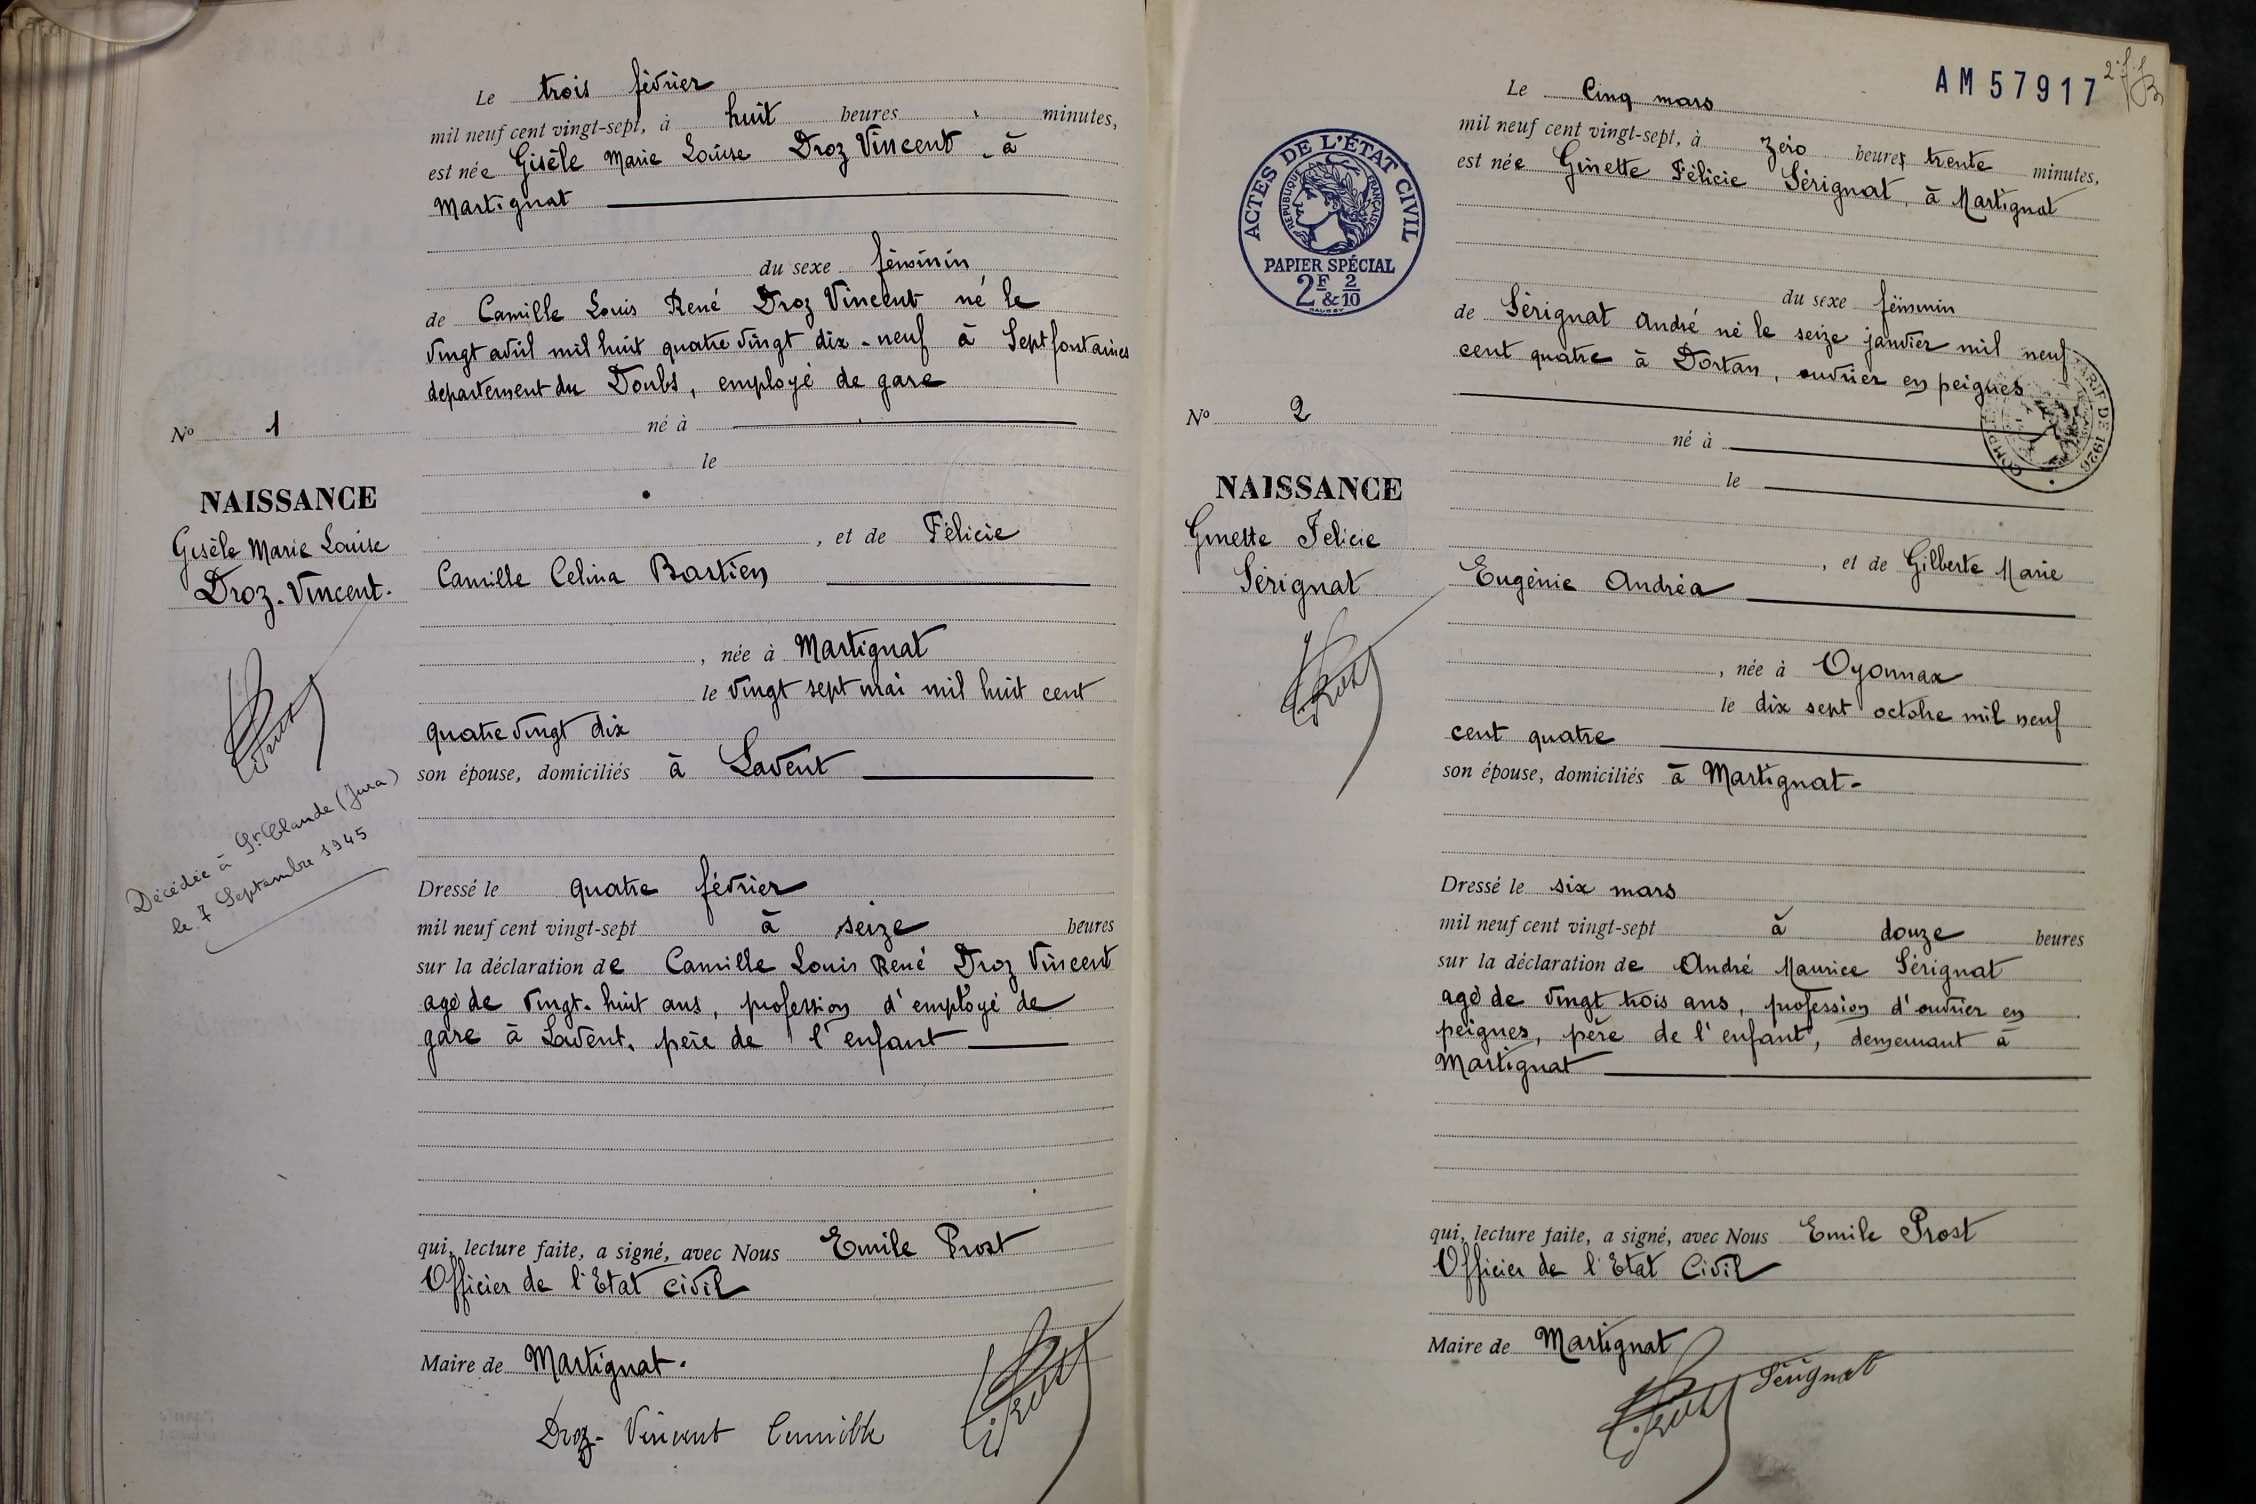 Le trois février
mil neuf cent vingt-sept, à huit heures minutes,
est née Gisèle Marie Louise Droz Vincent - à
Martignat
du sexe féminin
de Camille Louis René Droz Vincent né le
vingt avril mil huit quatre vingt dix-neuf à Septfontaines
departement du Doubs, employé de gare
né à
le
, et de Félicie
Camille Celina Bastien
, née à Martignat
le vingt sept mai mil huit cent
quatre vingt dix
son épouse, domiciliés à Lavent
Dressé le quatre février
mil neuf cent vingt-sept à seize heures
sur la déclaration de Camille Louis René Droz Vincent
agé de vingt-huit ans, profession d'employé de
gare à Lavent, père de l'enfant
qui, lecture faite, a signé, avec Nous Emile Prost
Officier de l'Etat civil
Maire de Martignat.
Droz-Vincent Camille
E. Prost
No 1
NAISSANCE
Gisèle Marie Louise
Droz-Vincent.
E. Prost
Décédée à St Claude (Jura)
le 7 Septembre 1945
AM 57917
Le Cinq mars
mil neuf cent vingt-sept, à zéro heures trente minutes,
est née Ginette Félicie Sérignat, à Martignat
du sexe féminin
de Sérignat André né le seize janvier mil neuf
cent quatre à Dortan, ouvrier en peignes
né à
le
, et de Gilberte Marie
Eugénie Andréa
, née à Oyonnax
le dix sept octobre mil neuf
cent quatre
son épouse, domiciliés à Martignat-
Dressé le six mars
mil neuf cent vingt-sept à douze heures
sur la déclaration de André Maurice Sérignat
agé de vingt trois ans, profession d'ouvrier en
peignes, père de l'enfant, demeurant à
Martignat
qui, lecture faite, a signé, avec Nous Emile Prost
Officier de l'Etat Civil
Maire de Martignat
E. Prost Sérignat
ACTES DE L'ÉTAT CIVIL
RÉPUBLIQUE FRANÇAISE
PAPIER SPÉCIAL
2F & 2/10
TARIF DE 1926
No 2
NAISSANCE
Ginette Félicie
Sérignat
E. Prost